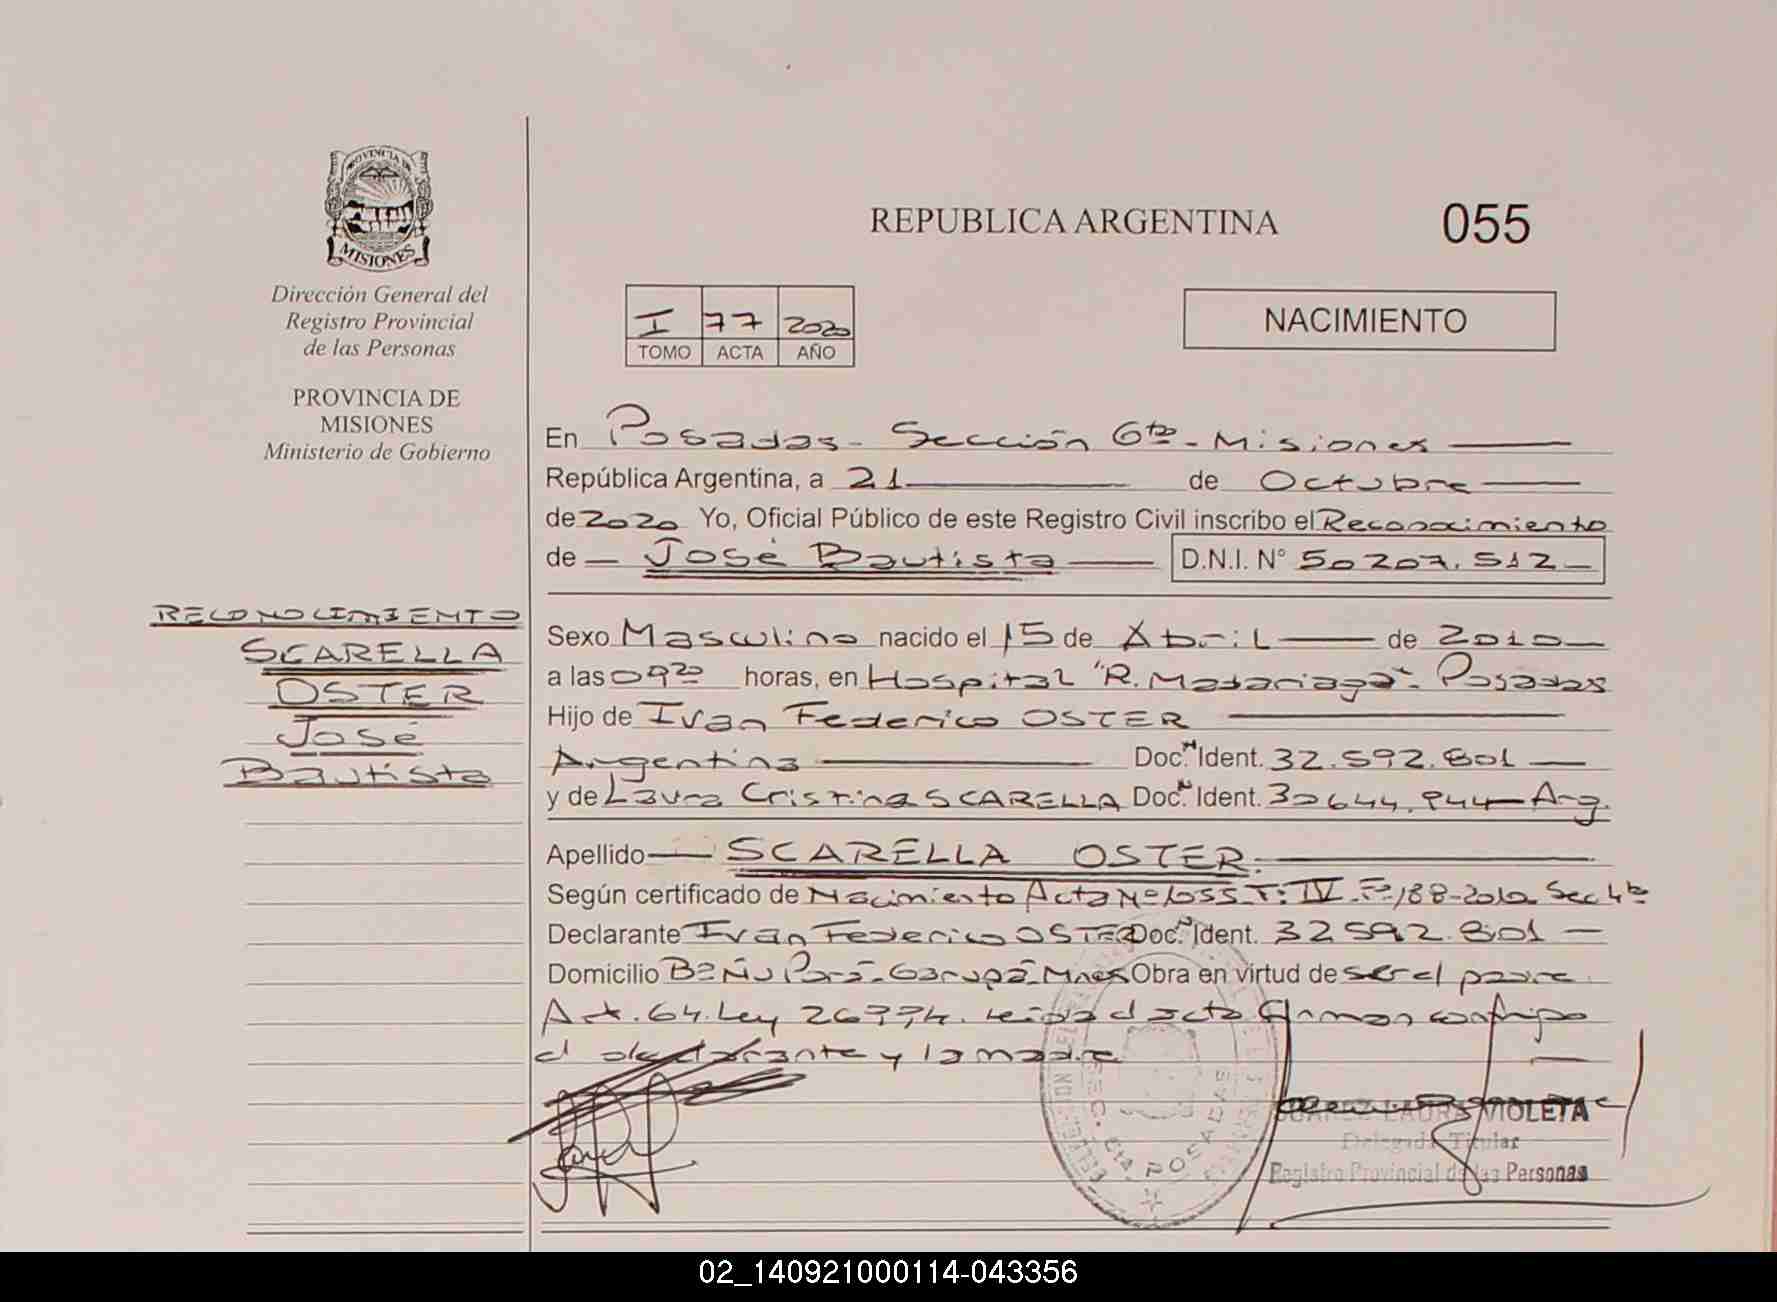 PROVINCIA DE
MISIONES
Dirección General del
Registro Provincial
de las Personas
PROVINCIA DE
MISIONES
Ministerio de Gobierno
RECONOCIMIENTO
SCARELLA
OSTER
José
Bautista
REPUBLICA ARGENTINA
055
I 77 2020
TOMO ACTA AÑO
NACIMIENTO
En Posadas - Sección 6ta - Misiones
República Argentina, a 21 de Octubre
de 2020 Yo, Oficial Público de este Registro Civil inscribo el Reconocimiento
de José Bautista D.N.I. N° 50207.512
Sexo Masculino nacido el 15 de Abril de 2010
a las 09 20 horas, en Hospital "R. Madariaga" - Posadas
Hijo de Ivan Federico OSTER
Argentina Doc. N Ident. 32.592.801
y de Laura Cristina SCARELLA Doc. N Ident. 30644.944 Arg.
Apellido SCARELLA OSTER
Según certificado de Nacimiento Acta Nº 1055 T: IV. Fº 188-2010 Sec 4ta
Declarante Ivan Federico OSTER Doc. N Ident. 32592.801
Domicilio Bº Ñu Porá - Garupá - Mnes Obra en virtud de ser el padre
Art. 64. Ley 26994. leida el acta firman conmigo
el declarante y la madre
SECC. 6ta. POSADAS
LAURA VIOLETA
Delegada Titular
Registro Provincial de las Personas
02_140921000114-043356